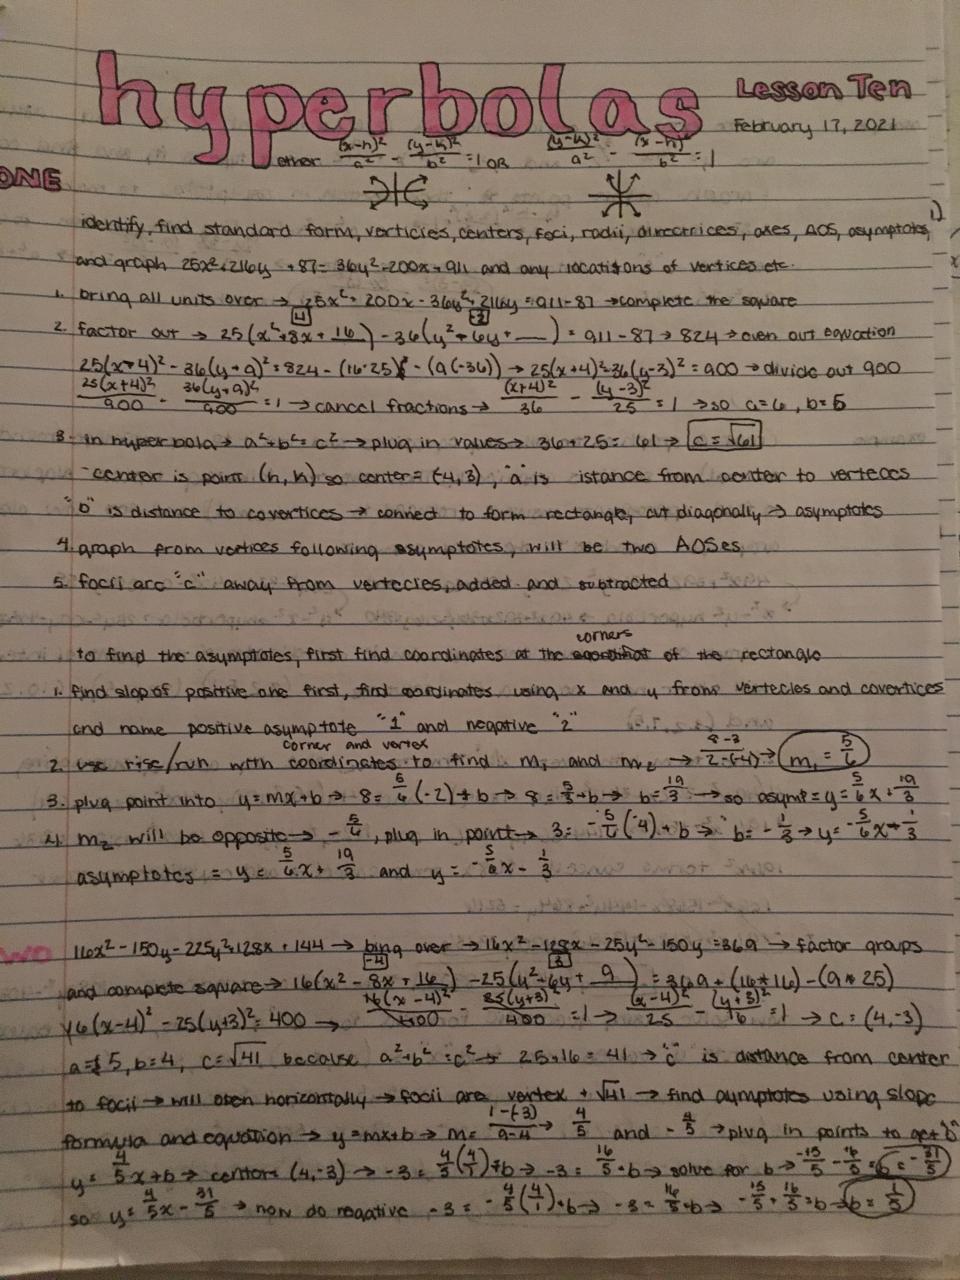 hyperbolas
Lesson Ten
February 17, 2021
either (x-h)²/a² - (y-k)²/b² = 1 OR (y-k)²/a² - (x-h)²/b² = 1
ONE
identify, find standard form, verticies, centers, foci, radii, directrices, axes, AOS, asymptotes,
and graph 25x²+216y+87=36y²-200x+911 and any locations of vertices etc.
1. bring all units over → 25x²+200x-36y²+216y=911-87 → complete the square
2. factor out → 25(x²+8x+16) -36(y²+6y+__)=911-87→824→even out equation
25(x+4)²-36(y+9)²=824-(16·25) -(9(-36))→25(x+4)²-36(y-3)²=900→divide out 900
25(x+4)²/900 - 36(y+9)²/900 =1→cancel fractions→ (x+4)²/36 - (y-3)²/25 =1→so a=6, b=5
3. in hyperbola→ a²+b²=c²→plug in values→36+25=61→ c=√61
-center is point (h,k) so center=(-4,3), "a" is istance from center to verteces
"b" is distance to covertices→connect to form rectangle, cut diagonally→asymptotes
4. graph from vertices following asymptotes, will be two AOSes
5. focii are "c" away from vertecies, added and subtracted
corners
to find the asymptotes, first find coordinates at the of the rectangle
1. find slop of positive one first, find coordinates using x and y from vertecies and covertices
and name positive asymptote "1" and negative "2"
corner and vertex
2. use rise/run with coordinates to find m₁ and m₂ → 8-3/2-(-4)→ m₁=5/6
3. plug point into y=mx+b→8=5/6(-2)+b→8=5/3+b→b=19/3→so asymp=y=5/6x+19/3
4. m₂ will be opposite→ -5/6, plug in point→3=-5/6(-4)+b→b=-1/3→y=-5/6x+1/3
asymptotes = y=5/6x+19/3 and y=-5/6x-1/3
TWO
16x²-150y-225y²+128x+144→bing over→16x²-128x-25y²-150y=369→factor groups
and complete square→16(x²-8x+16)-25(y²+6y+9)=369+(16*16)-(9*25)
16(x-4)²-25(y+3)²=400→ 16(x-4)²/400 - 25(y+3)²/400 =1→ (x-4)²/25 - (y+3)²/16 =1→c=(4,-3)
a=5, b=4, c=√41 because a²+b²=c²→25+16=41→"c" is distance from center
to focii→will open horizontally→focii are vertex +√41→find aymptotes using slope
formula and equation→y=mx+b→m=1-(-3)/9-4→4/5 and -4/5→plug in points to get "b"
y=4/5x+b→center=(4,-3)→-3=4/5(4/1)+b→-3=16/5+b→solve for b→-15/5-16/5=b=-31/5
so y=4/5x-31/5→now do negative -3=-4/5(4/1)+b→-3=16/5+b→-15/5+16/5=b→b=1/5